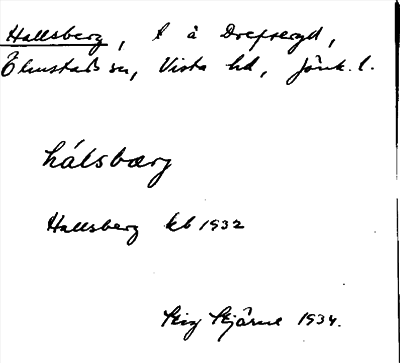 Hallsberg, t å Drefseryd,
Ölmstads sn, Vista hd, Jönk. l.
hálsbærg
Hallsberg kb 1932
Stig Stjärne 1934.